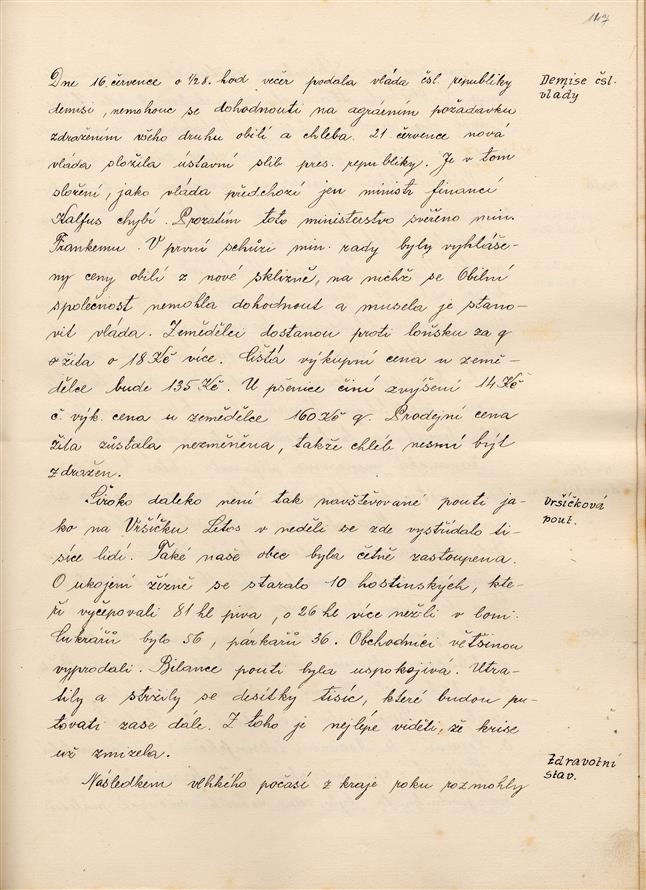 Dne 16. července o ½8. hod večer podala vláda čsl. republiky
Demise čsl.
vlády
demisi, nemohouc se dohodnouti na agrárním požadavku
zdražením všeho druhu obilí a chleba. 21 července nová
vláda složila ústavní slib pres. republiky. Je v tom
složení, jako vláda předchozí jen ministr financí
Kalfus chybí. Prozatím toto ministerstvo svěřeno min.
Frankemu. V první schůzi min. rady byly vyhláše-
ny ceny obilí z nové sklizně, na nichž se Obilní
společnost nemohla dohodnout a musela je stano-
vit vláda. Zemědělci dostanou proti loňsku za q
žita o 18 Kč více. Čistá výkupní cena u země-
dělce bude 135 Kč. U pšenice činí zvýšení 14 Kč
č. výk. cena u zemědělce 160 Kč q. Prodejní cena
žita zůstala nezměněna, takže chléb nesmí býť
zdražen.
Široko daleko není tak navštěvované pouti ja-
Vršíčková
pout.
ko na Vršíčku. Letos v neděli se zde vystřídalo ti-
síce lidí. Také naše obec byla četně zastoupena.
O ukojení žízně se staralo 10 hostinských, kte-
ří vyčepovali 81 hl piva, o 26 hl více nežli v loni.
Cukrářů bylo 56, párkařů 36. Obchodníci většinou
vyprodali. Bilance pouti byla uspokojivá. Utra-
tily a stržily se desítky tisíc, které budou pu-
tovati zase dále. Z toho je nejlépe viděti, že krise
už zmizela.
Zdravotní
stav.
Následkem vlhkého počasí z kraje roku rozmohly